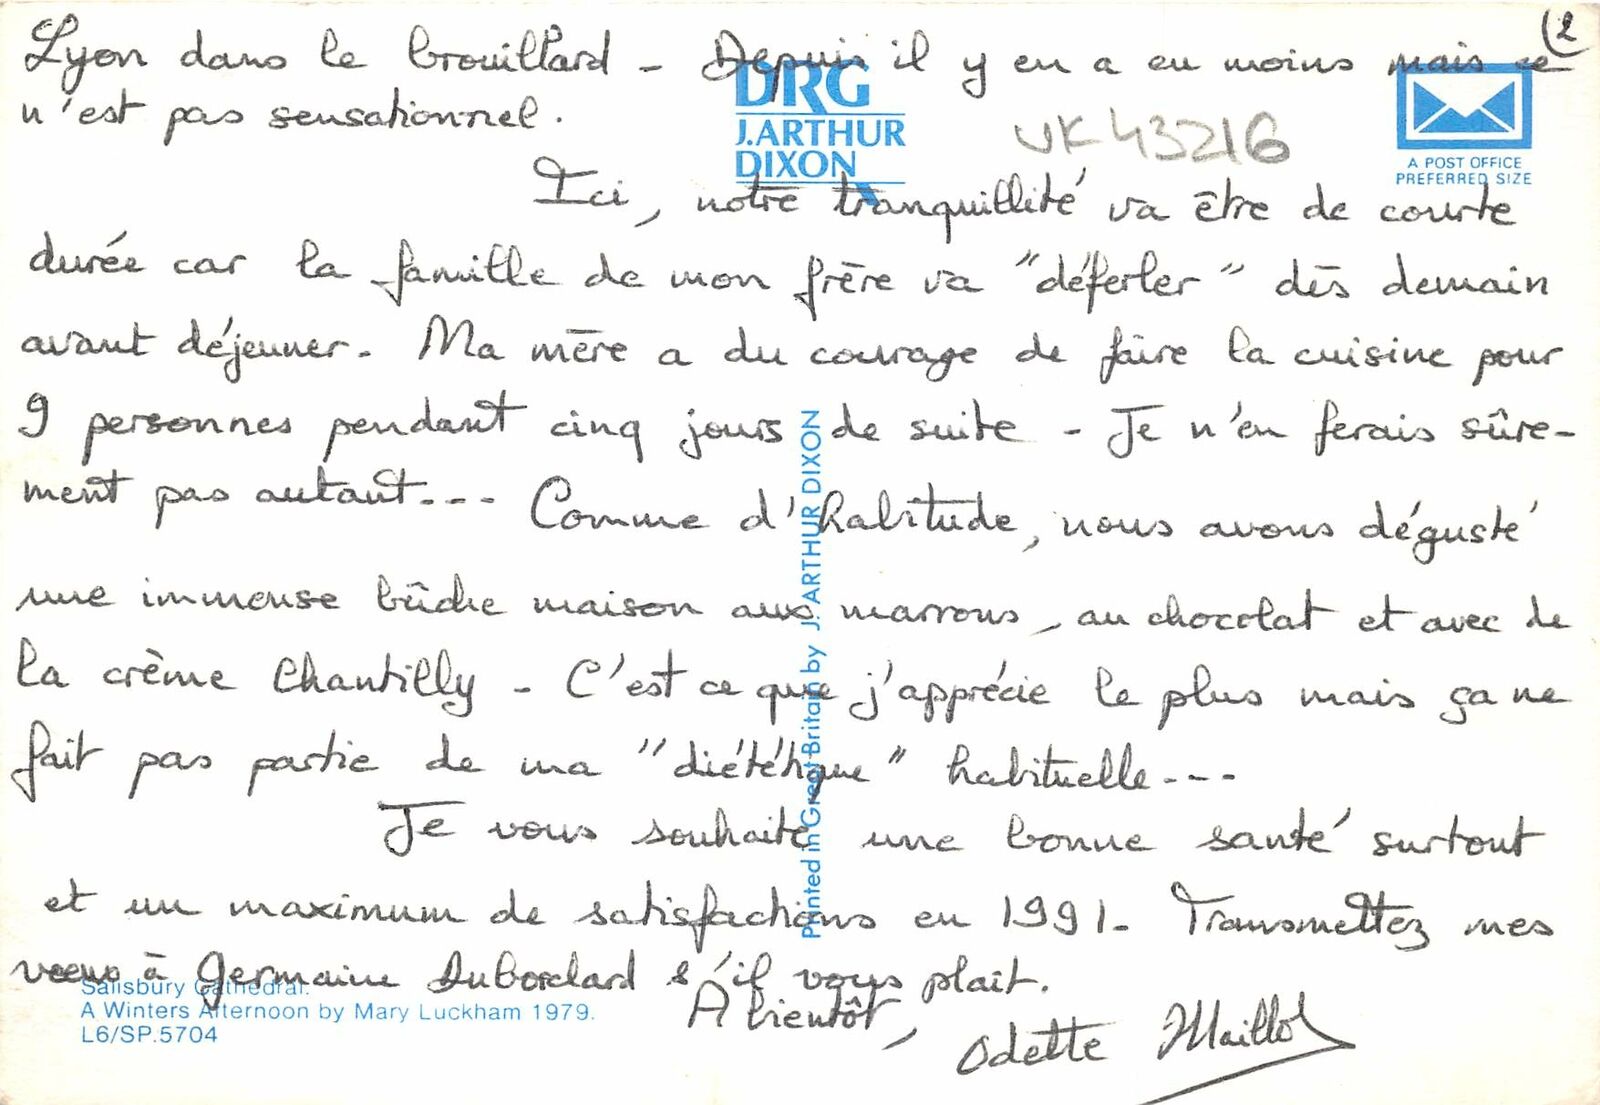 (2
Lyon dans le brouillard - Depuis il y en a eu moins mais ce
n'est pas sensationnel.
DRG
J.ARTHUR
DIXON
UK43216
A POST OFFICE
PREFERRED SIZE
Ici, notre tranquillité va être de courte
durée car la famille de mon frère va "déferler" dès demain
avant déjeuner. Ma mère a du courage de faire la cuisine pour
9 personnes pendant cinq jours de suite - Je n'en ferais sûre-
ment pas autant... Comme d'habitude, nous avons dégusté
une immense bûche maison aux marrons, au chocolat et avec de
la crème Chantilly - C'est ce que j'apprécie le plus mais ça ne
fait pas partie de ma "diététique" habituelle...
Je vous souhaite une bonne santé surtout
et un maximum de satisfactions en 1991. Transmettez mes
voeux à Germaine s'il vous plait.
A bientôt,
Odette Maillot
Printed in Great Britain by J. ARTHUR DIXON
Salisbury Cathedral.
A Winters Afternoon by Mary Luckham 1979.
L6/SP.5704